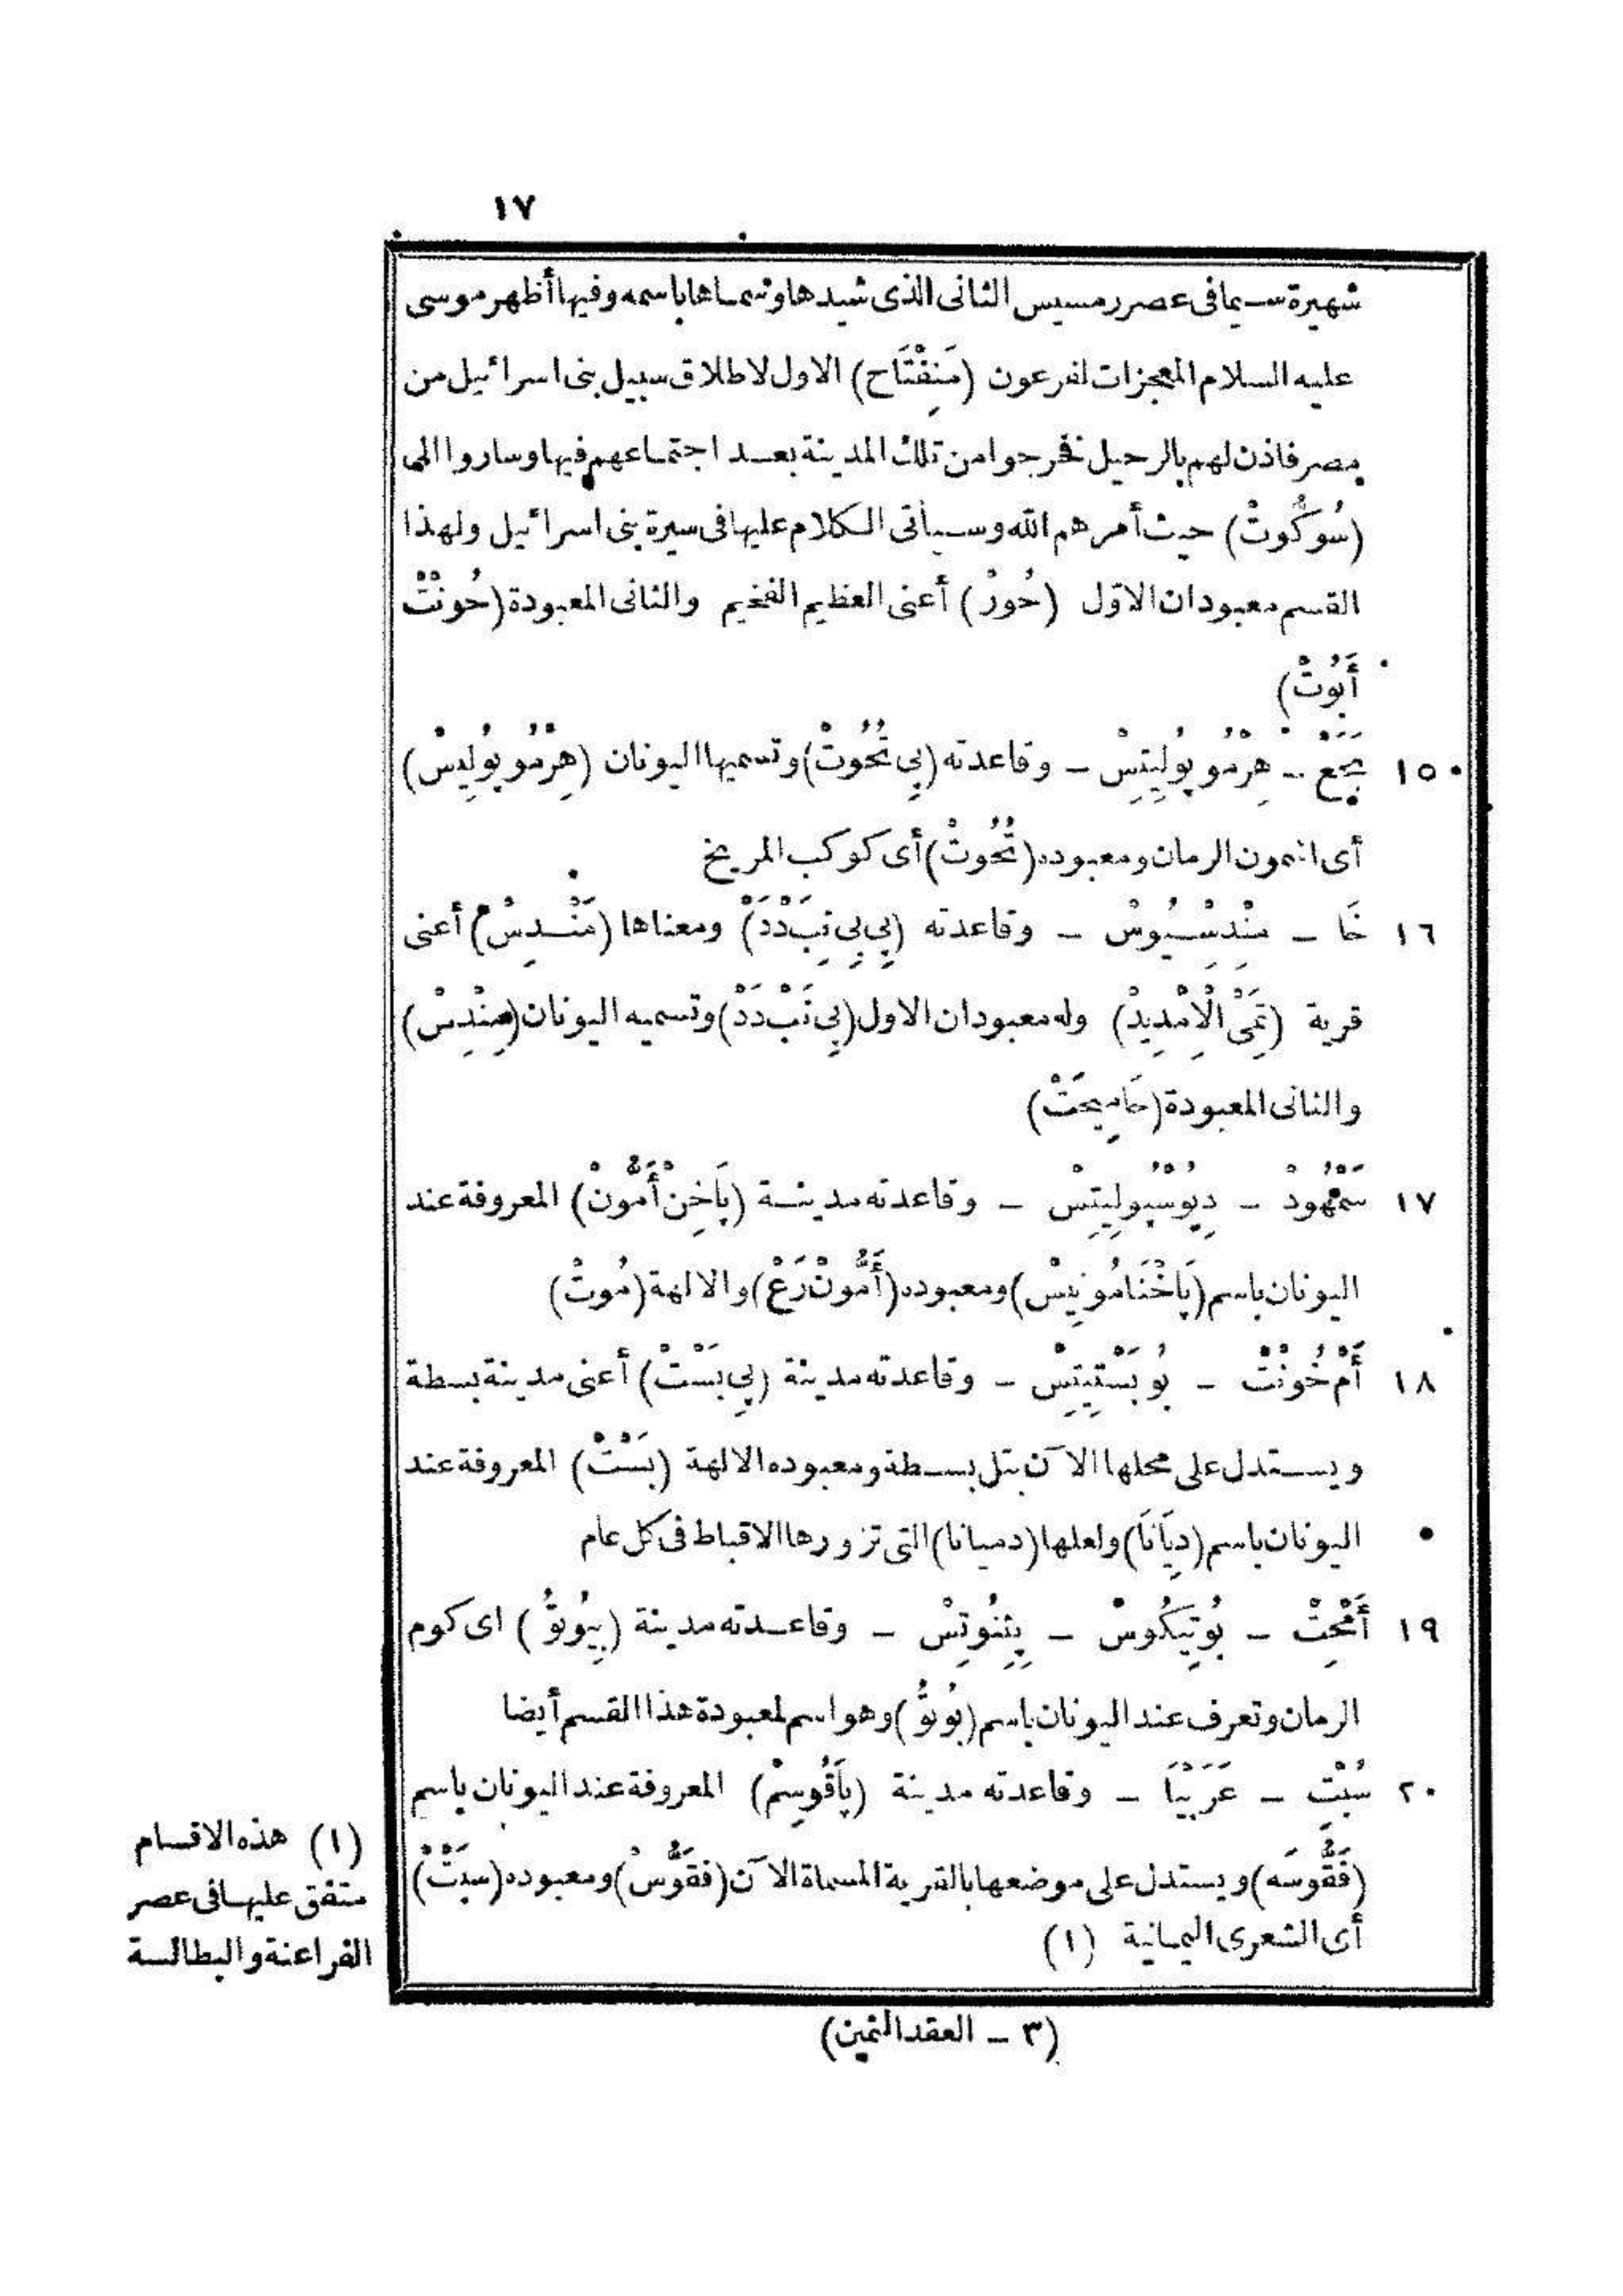 ١٧
شهيرة سيما فى عصر رمسيس الثانى الذى شيدها وسماها باسمه وفيها أظهر موسى
عليه السلام المعجزات لفرعون (مَنِفْتَاح) الاول لاطلاق سبيل بنى اسرائيل من
مصر فاذن لهم بالرحيل فخرجوا من تلك المدينة بعد اجتماعهم فيها وساروا الى
(سُوكُّوتْ) حيث أمرهم الله وسيأتى الكلام عليها فى سيرة بنى اسرائيل ولهذا
القسم معبودان الاوّل (حُورْ) أعنى العظيم الفخيم والثانى المعبودة (حُونْتْ
أَبُوتْ)
١٥ هِرْمُو پُولِيتِسْ - وقاعدته (پِى تُحُوتْ) وتسميها اليونان (هِرْمُو پُولِيسْ)
أى اشمون الرمان ومعبوده (تُحُوتْ) أى كوكب المريخ
١٦ خَا - مِنْدِسْيُوسْ - وقاعدته (پِى پِى نِبْ دَدْ) ومعناها (مَنْدِسْ) أعنى
قرية (تِمَىْ الْاِمْدِيدْ) وله معبودان الاول (پِى نَبْ دَدْ) وتسميه اليونان (مِنْدِسْ)
والثانى المعبودة (حَامِيحَتْ)
١٧ سَمْهُودْ - دِيُوسْپُولِيتِسْ - وقاعدته مدينة (پَاخِنْ أَمُّونْ) المعروفة عند
اليونان باسم (پَاخْنَامُونِيسْ) ومعبوده (أَمُّونْ رَعْ) والالهة (مُوتْ)
١٨ أَمْ خُونْتْ - بُو بَسْتِيتِسْ - وقاعدته مدينة (پِى بَسْتْ) أعنى مدينة بسطة
ويستدل على محلها الآن بتل بسطة ومعبوده الالهة (بَسْتْ) المعروفة عند
اليونان باسم (دِيَانَا) ولعلها (دميانا) التى تزورها الاقباط فى كل عام
١٩ أَمْحِتْ - بُوتِيكُوسْ - پِتِنُوتِسْ - وقاعدته مدينة (پِيُوتُو) اى كوم
الرمان وتعرف عند اليونان باسم (بُوتُو) وهو اسم لمعبودة هذا القسم أيضا
٢٠ سُبْتِ - عَرَبْيَا - وقاعدته مدينة (پَاقُوسِمْ) المعروفة عند اليونان باسم
(فَقُّوسَه) ويستدل على موضعها بالقرية المسماة الآن (فقُّوسْ) ومعبوده (سبَتْ)
أى الشعرى اليمانية (١)
(١) هذه الاقسام
متفق عليها فى عصر
الفراعنة والبطالسة
(٣ - العقد الثمين)